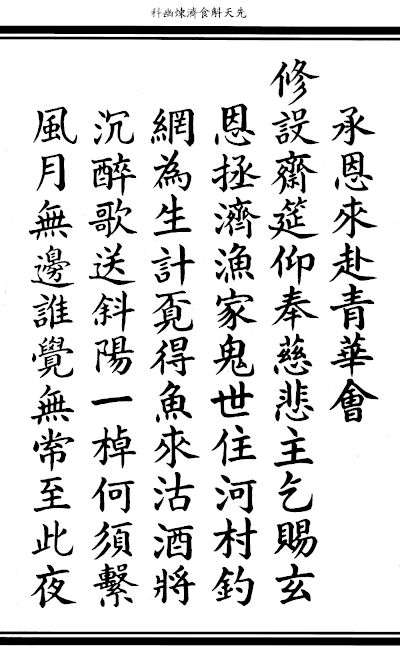 先天斛食濟煉幽科
承恩來赴青華會
修設齋筵仰奉慈悲主乞賜玄
恩拯濟漁家鬼世住河村釣
網為生計覔得魚來沽酒將
沉醉歌送斜陽一棹何須繫
風月無邊誰覺無常至此夜